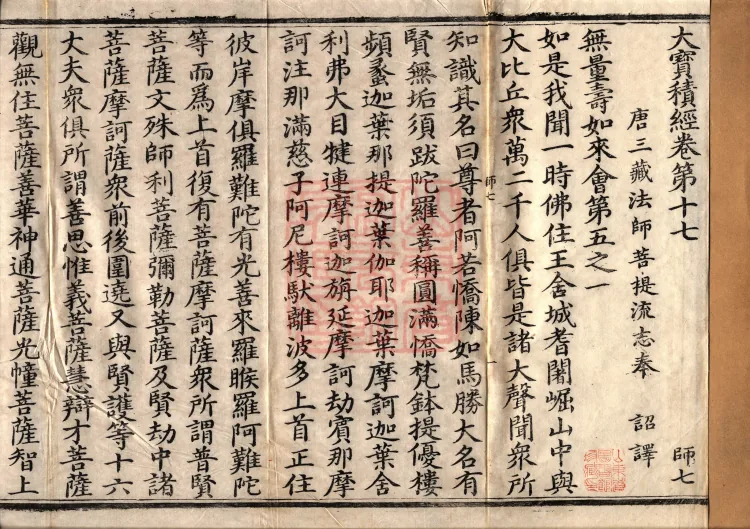 大寶積經卷第十七 師七
唐三藏法師菩提流志奉 詔譯
無量壽如來會第五之一
如是我聞一時佛住王舍城耆闍崛山中與
大比丘衆萬二千人俱皆是諸大聲聞衆所
知識其名曰尊者阿若憍陳如馬勝大名有
師七 一
賢無垢須跋陀羅善稱圓滿憍梵鉢提優樓
頻蚤迦葉那提迦葉伽耶迦葉摩訶迦葉舍
利弗大目犍連摩訶迦旃延摩訶劫賓那摩
訶注那滿慈子阿尼樓馱離波多上首正住
彼岸摩俱羅難陀有光善來羅睺羅阿難陀
等而爲上首復有菩薩摩訶薩衆所謂普賢
菩薩文殊師利菩薩彌勒菩薩及賢劫中諸
菩薩摩訶薩衆前後圍遶又與賢護等十六
大夫衆俱所謂善思惟義菩薩慧辯才菩薩
觀無住菩薩善華神通菩薩光幢菩薩智上